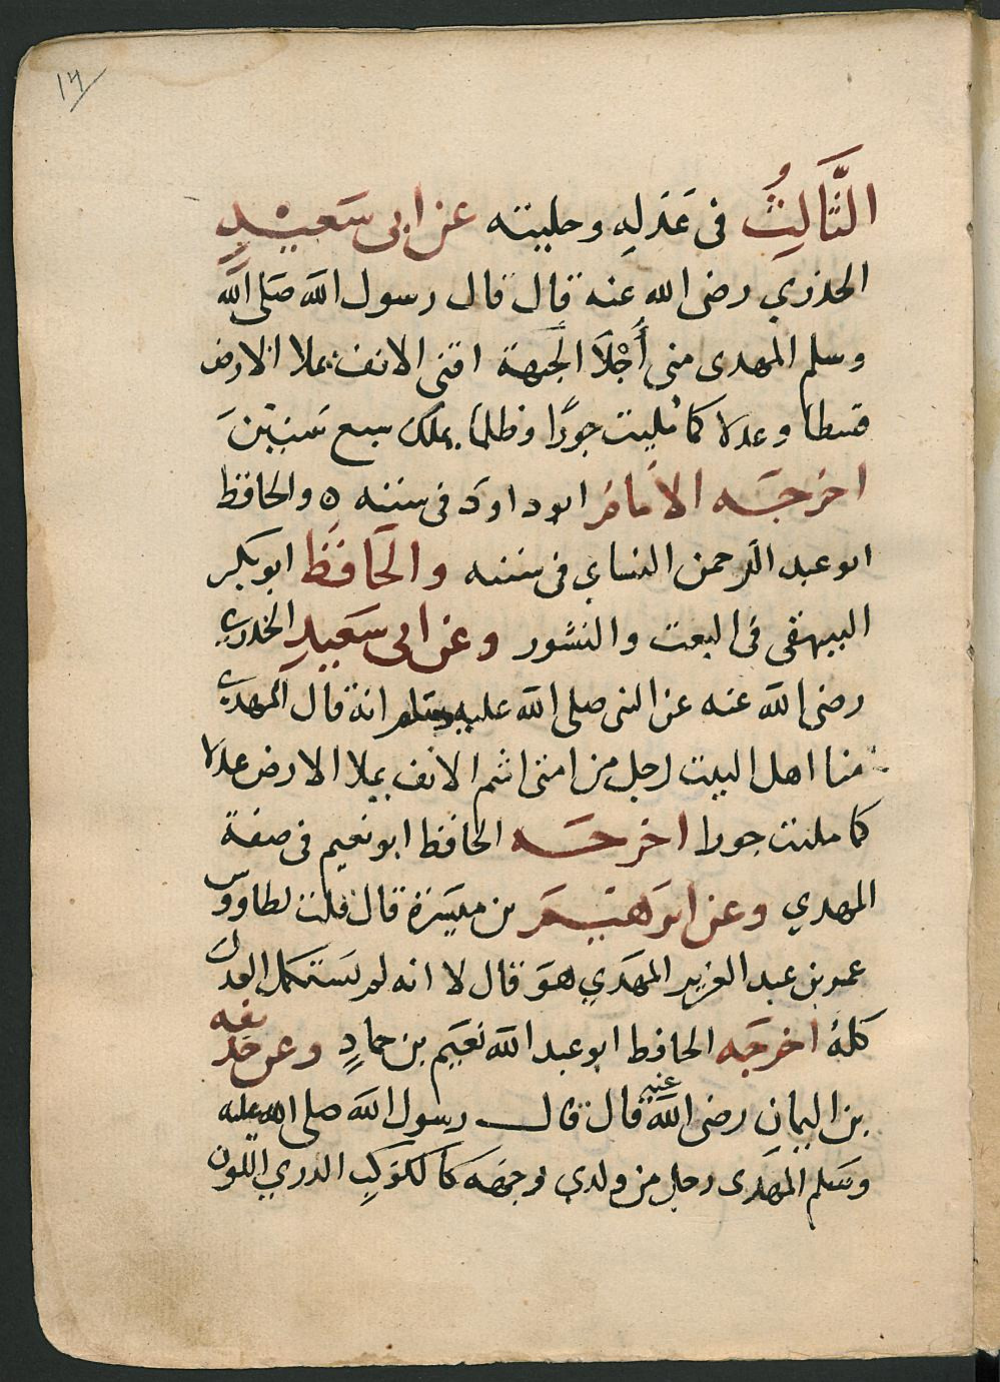 ١٦
الثَّالِثُ في عَدْلِهِ وحليته عن ابى سَعيْدٍ
الخدري رضى الله عنه قال قال رسول الله صَلى الله
وسلم المهدى منى أَجْلاَ الجبهة اقنى الانف يملا الارض
قسطا وعدلا كما مُليت جورًا وظلما يملك سبع سَنيْنَ
اخرجَه الاَمام ابو داود في سننه ٥ والحافظ
ابو عبد الرحمن النساي في سننه والحَافظ ابو بكر
البيهقى في البعث والنشور وعن ابى سَعيدٍ الخدري
رضى الله عنه عن النبى صلى الله عليه وسلم انه قال المهدي
منا اهل البيت رجل من امتى اشم الانف يملا الارض عدلا
كما ملئت جورا اخرجَه الحافظ ابو نعيم في صفة
المهدي وعن ابرَهيمَ بن ميسَرة قال قلت لطاووس
عمر بن عبد العزيز المهَدي هوَ قال لا انه لم يَستكمل العدل
كلهُ اخرجَه الحافظ ابو عبد الله نعَيم بن حمادٍ وعن حذيفه
بن اليمانِ رضى الله عنه قال قال رسول الله صلى الله عليه
وسَلم المهَدى رجل من ولدي وجهَه كالكوكبِ الدري اللون